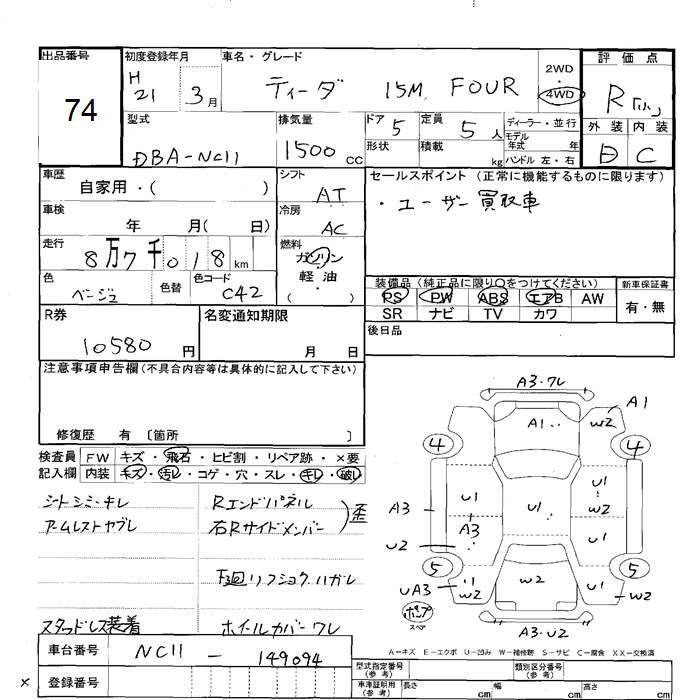 出品番号
74
初度登録年月
H 21 3月
車名・グレード
ティーダ 15M FOUR
2WD
・
4WD
評価点
R「小」
外装 内装
D C
型式
DBA-NC11
排気量
1500 cc
ドア 5
定員 5 人
形状
積載 kg
ディーラー・並行
モデル年式 年
ハンドル 左・右
車歴
自家用・( )
シフト
AT
セールスポイント (正常に機能するものに限ります)
・ユーザー買取車
車検
年 月( 日)
冷房
AC
走行
8万7千018 km
燃料
ガソリン
軽油
( )
色
ベージュ
色替
色コード
C42
装備品 (純正品に限り○をつけてください)
PS PW ABS エアB AW
SR ナビ TV カワ
新車保証書
有・無
R券
10580 円
名変通知期限
月 日
後日品
注意事項申告欄 (不具合内容等は具体的に記入して下さい)
修復歴 有 〔箇所 〕
検査員 FW キズ・飛石・ヒビ割・リペア跡・×要
記入欄 内装 キズ・汚レ・コゲ・穴・スレ・キレ・破レ
シートシミ・キレ
アームレストヤブレ
Rエンドパネル
右Rサイドメンバー
)歪
下廻リフショク、ハガレ
スタッドレス装着
ホイールカバーワレ
A3・ワレ
A1
A1
W2
4
4
U1
U1
W2
A3
A3
U1
U1
U2
5
5
UA3
U1
W2
U1
W2
ポンプ
スペア
A3・U2
A－キズ E－エクボ U－凹み W－補修跡 S－サビ C－腐食 XX－交換済
車台番号
NC11 - 149094
× 登録番号
型式指定番号
(参考)
類別区分番号
(参考)
車庫証明用
(参考)
長さ cm
幅 cm
高さ cm